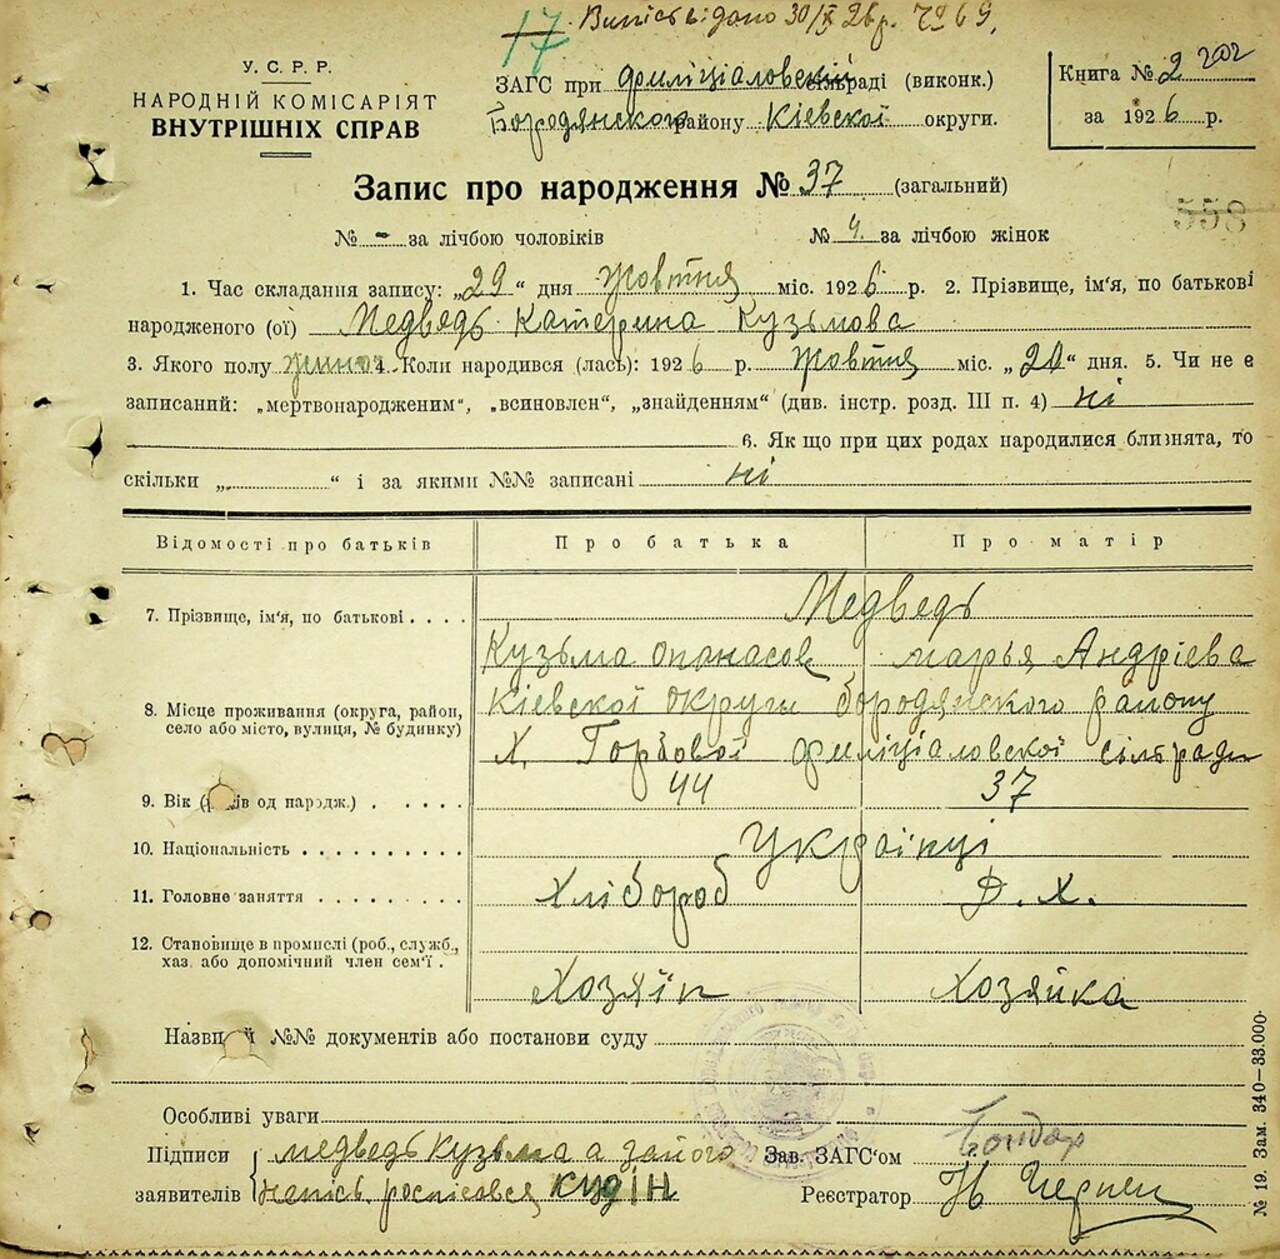 17 Випісь відано 30/X 26 р. № 69.
У. С. Р. Р.
НАРОДНІЙ КОМІСАРІЯТ
ВНУТРІШНІХ СПРАВ
ЗАГС при Филіціаловскій сільраді (виконк.)
Бородянского району Кіевскої округи.
Книга № 2
за 1926 р.
Запис про народження № 37 (загальний)
558
№ - за лічбою чоловіків № 4. за лічбою жінок
1. Час складання запису: „29“ дня Жовтня міс. 1926 р. 2. Прізвище, ім'я, по батькові
народженого (ої) Медведь Катерина Кузьмова
3. Якого полу жиноч 4. Коли народився (лась): 1926 р. Жовтня міс. „20“ дня. 5. Чи не є
записаний: „мертвонародженим“, „всиновлен“, „знайденням“ (див. інстр. розд. III п. 4) ні
6. Як що при цих родах народилися близнята, то
скільки „ “ і за якими №№ записані ні
Відомості про батьків Про батька Про матір
7. Прізвище, ім'я, по батькові . . . . Медведь
Кузьма Опанасов марья Андріева
8. Місце проживання (округа, район, село або місто, вулиця, № будинку) Кіевскої округи бородянского району
Х. Горбової Филіціаловскої сільради
9. Вік ( ів од народж.) . . . . . 44 37
10. Національність . . . . . . . . . . Українці
11. Головне заняття . . . . . . . . . Хлібороб Д. Х.
12. Становище в промислі (роб., служб.,
хаз. або допомічний член сем'ї . Хозяїн Хозяйка
Назви й №№ документів або постанови суду
Особливі уваги
Підписи медведь Кузьма а за його Зав. ЗАГС'ом Бондар
заявителів непісь. росписався КУДІН Реєстратор
№ 19. Зам. 340—33.000.